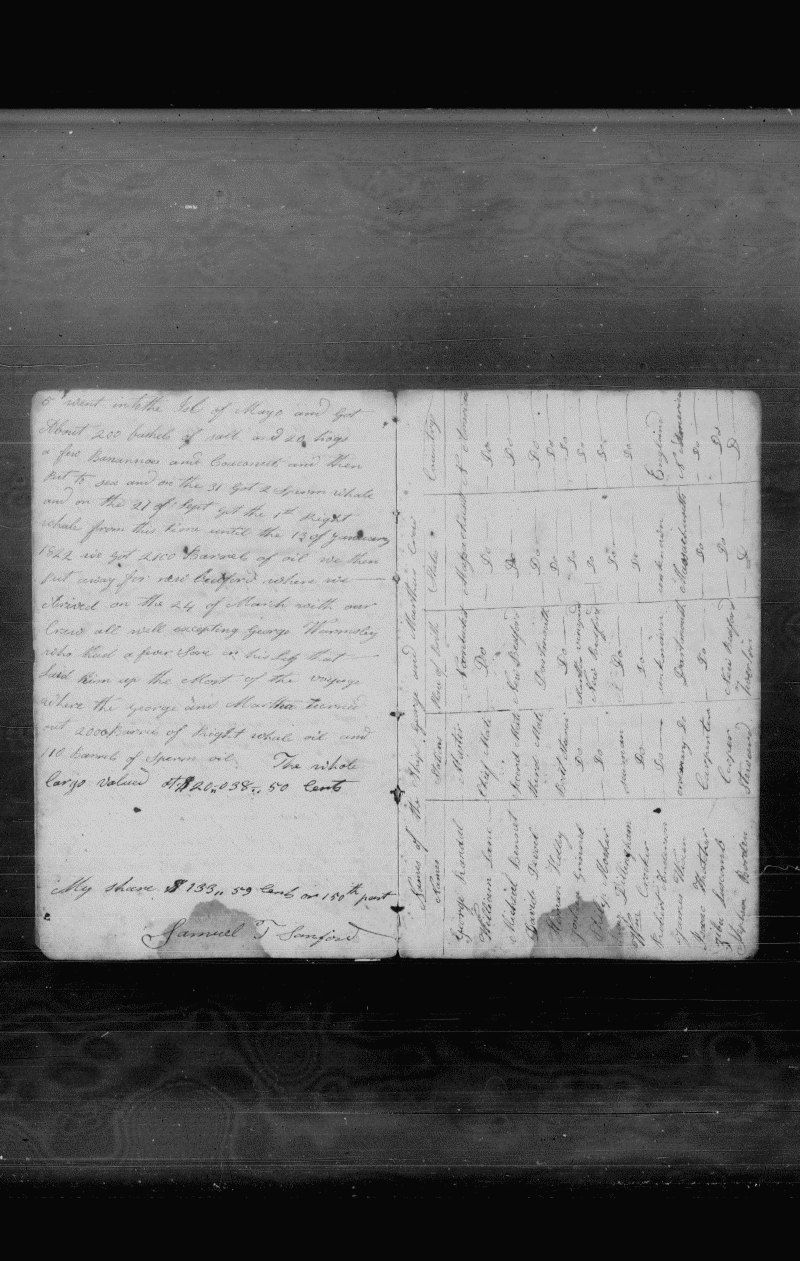 5 went into the Isl of Mayo and Got
About 200 bushels of salt and 20 hogs
a few Banannoes and Coucanuts and then
put to sea and on the 31 Got 2 Sperm whale
and on the 27 of Sept got the 1st Right
whale from this time until the 13 of January
1822 we got 2100 Barrels of oil we then
put away for new Bedford where we
Arived on the 24 of March with our
Crew all well excepting George
who had a fever Sore in his Leg that
Laid him up the Most of the voyage
Where the George and Martha turned
out 2000 Barrels of Right whale oil and
110 Barrels of Sperm oil. The whole
Cargo valued At $20,,038,,50 Cents
My share $133,,59 Cents or 150th part
Samuel T Sanford
Names of the Ship George and Marthas Crew
Names Stations Place of Birth State Country
George Master Nantucket Massachusetts N America
William Chief Mate Do Do Do
Second Mate New Bedford Do Do
David Third Mate Dartmouth Do Do
Kelley Do Do Do
Do Martha vinyard Do Do
Mosher Do New Bedford Do Do
Dillingham seaman Do Do Do
Do Do Do
Robert Do unknown unknown England
James Do Dartmouth Massachusetts N America
Carpenter Do Do Do
John Cooper New Bedford Do Do
Stephen Borden Steward Tiverton D D